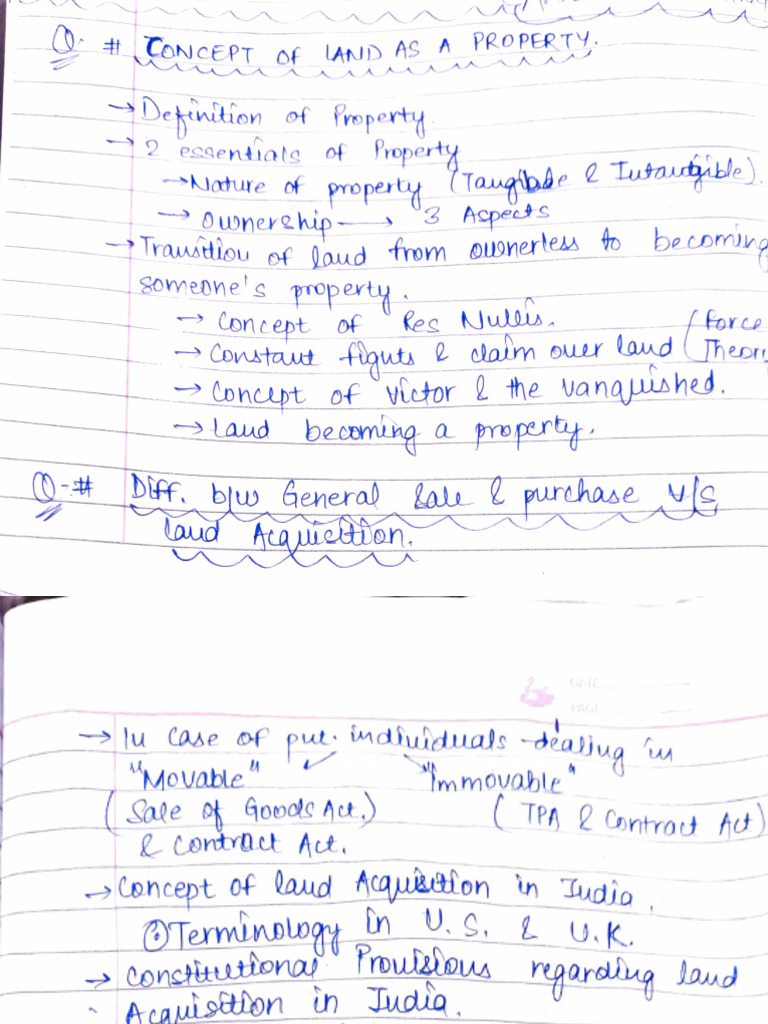 Q. # CONCEPT OF LAND AS A PROPERTY.
→ Definition of Property
→ 2 essentials of Property
→ Nature of property (Tangible & Intangible).
→ Ownership → 3 Aspects
→ Transition of land from ownerless to becoming
someone's property.
→ Concept of Res Nullis.
→ Constant fights & claim over land (Force Theory
→ Concept of victor & the vanquished.
→ Land becoming a property.
Q - # Diff. b/w General Sale & purchase v/s
land Acquisition.
DATE
PAGE
→ In case of pvt. individuals dealing in
"Movable" "Immovable"
(Sale of Goods Act.) (TPA & Contract Act)
& Contract Act.
→ Concept of land Acquisition in India.
Terminology in U.S. & U.K.
→ Constitutional Provisions regarding land
Acquisition in India.